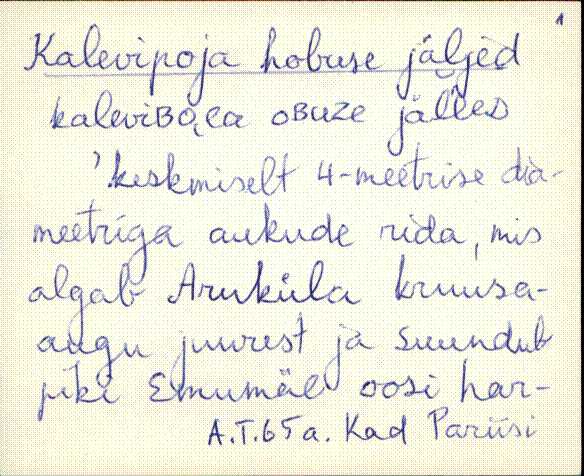 1
Kalevipoja hobuse jäljed
kaleviʙo̬ɛa oʙuze jälleᴅ
'keskmiselt 4-meetrise dia-
meetriga aukude rida, mis
algab Aruküla kruusa-
augu juurest ja suundub
piki Emumäe oosi har-
A.T. 65 a. Kad Pariisi